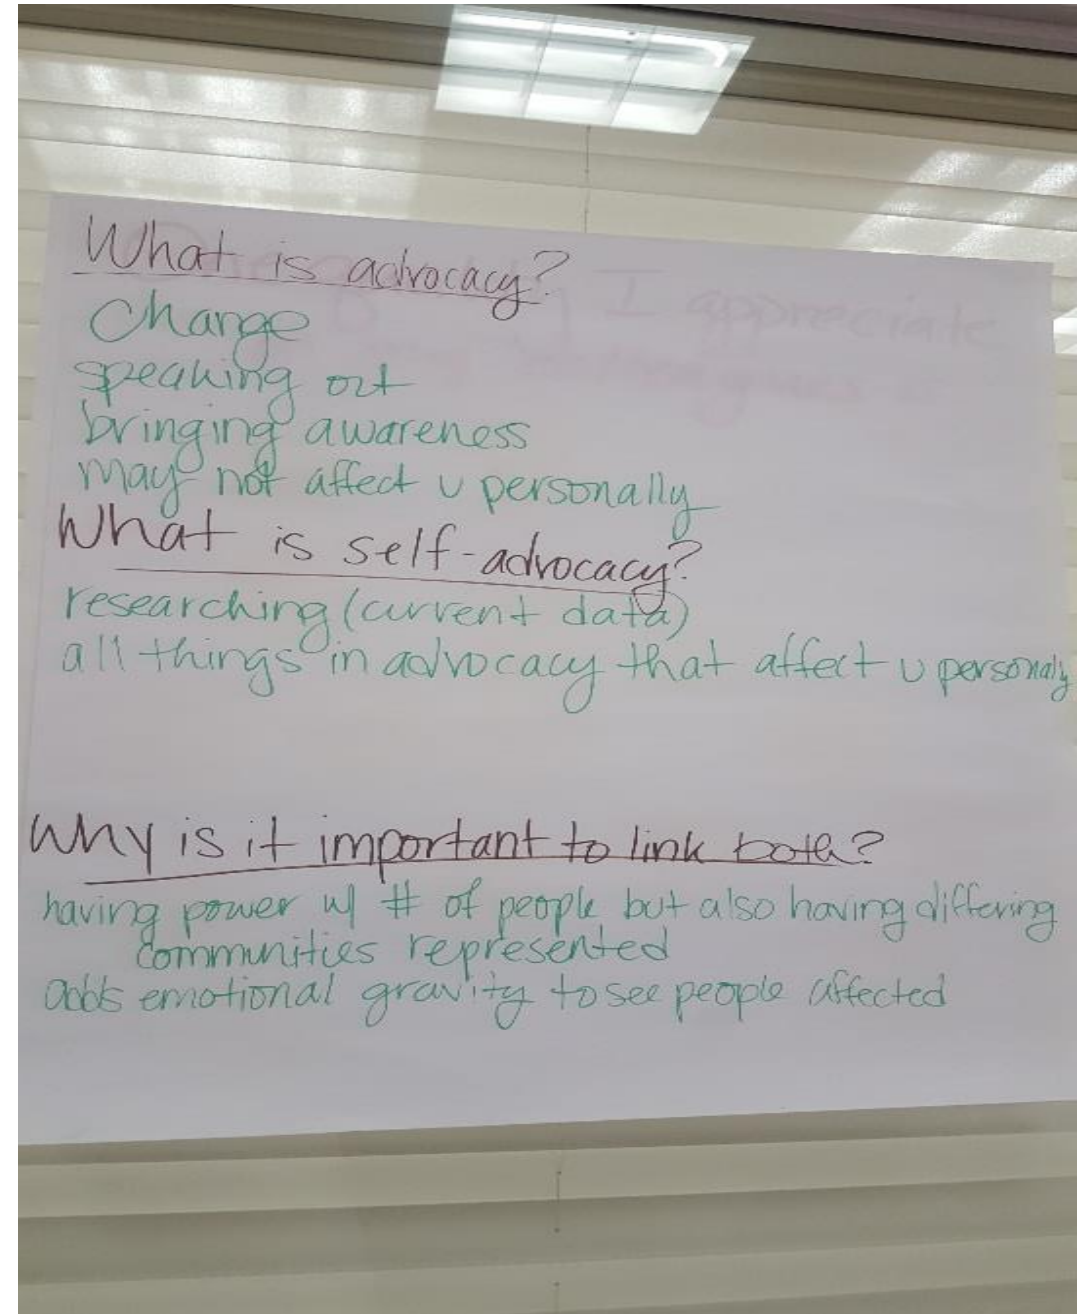 What is advocacy?
I appreciate
Change
speaking out
bringing awareness
may not affect u personally
What is self-advocacy?
researching (current data)
all things in advocacy that affect u personaly
Why is it important to link both?
having power w/ # of people but also having differing
communities represented
adds emotional gravity to see people affected